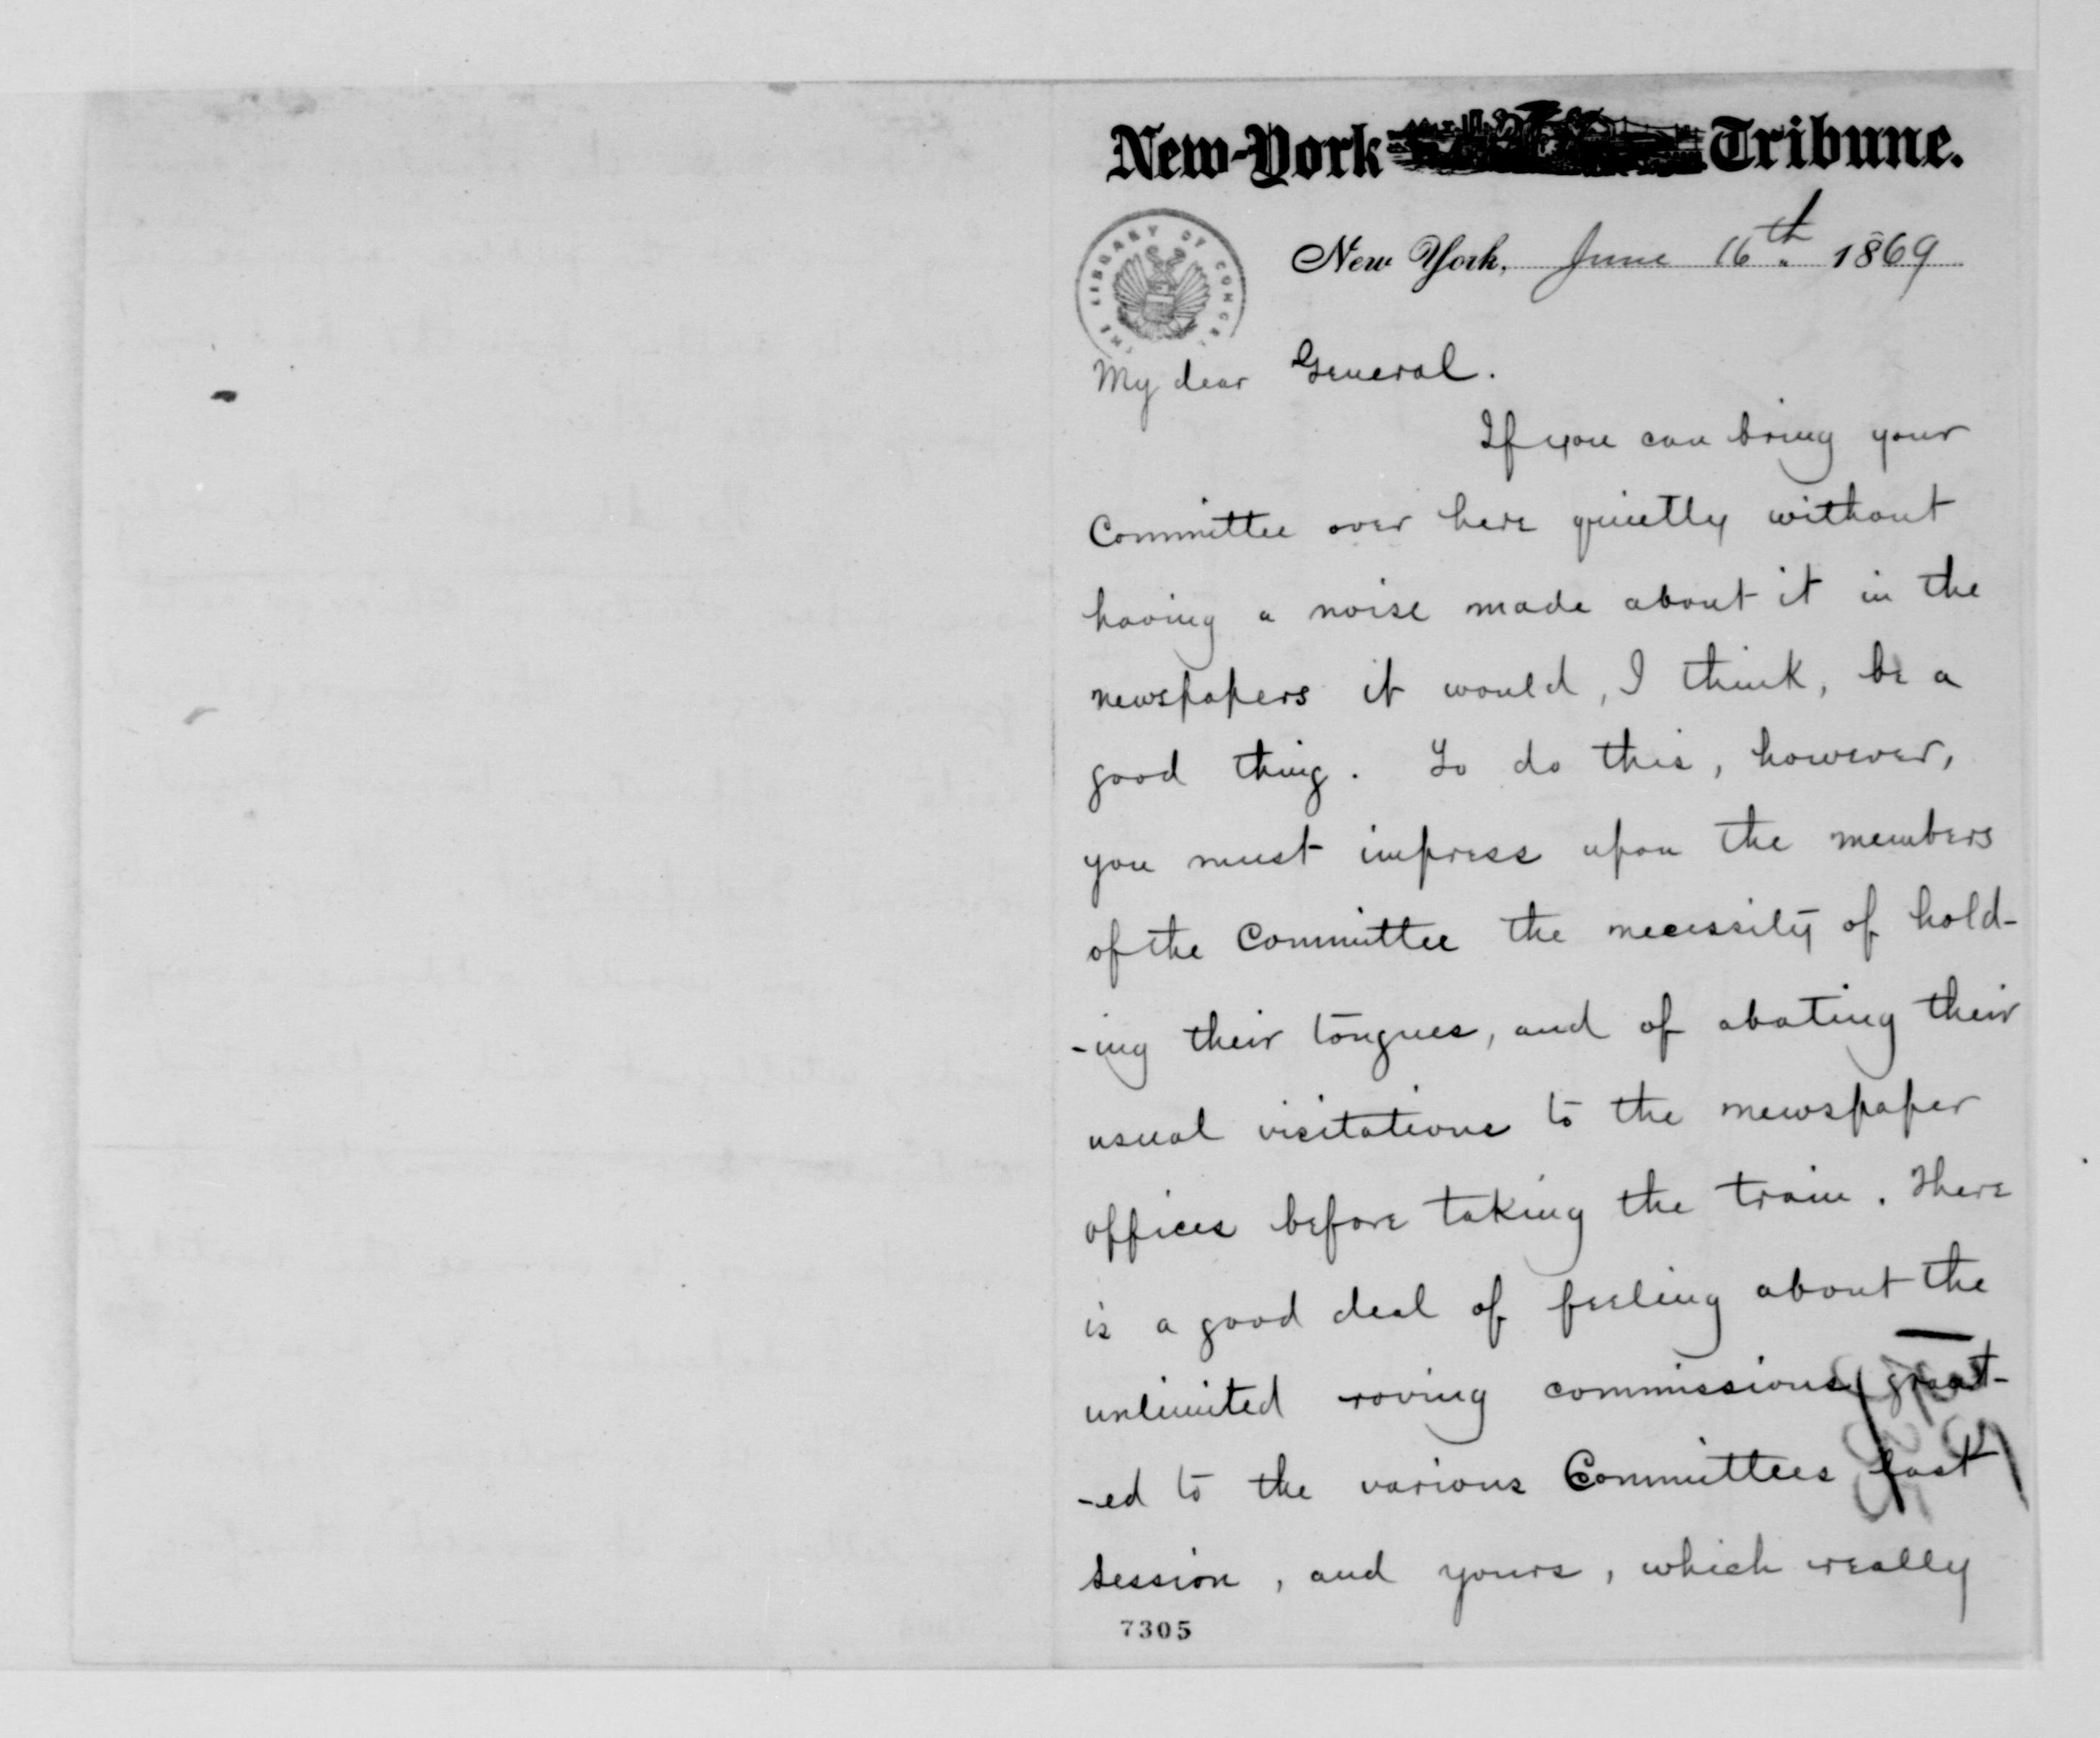 New-York Tribune.
THE LIBRARY OF CONGRESS
New York, June 16th. 1869
My dear General.
If you can bring your
Committee over here quietly without
having a noise made about it in the
newspapers it would, I think, be a
good thing. To do this, however,
you must impress upon the members
of the Committee the necessity of hold-
-ing their tongues, and of abating their
usual visitations to the newspaper
offices before taking the train. There
is a good deal of feeling about the
unlimited roving commissions grant-
-ed to the various Committees last
session, and yours, which really
7305